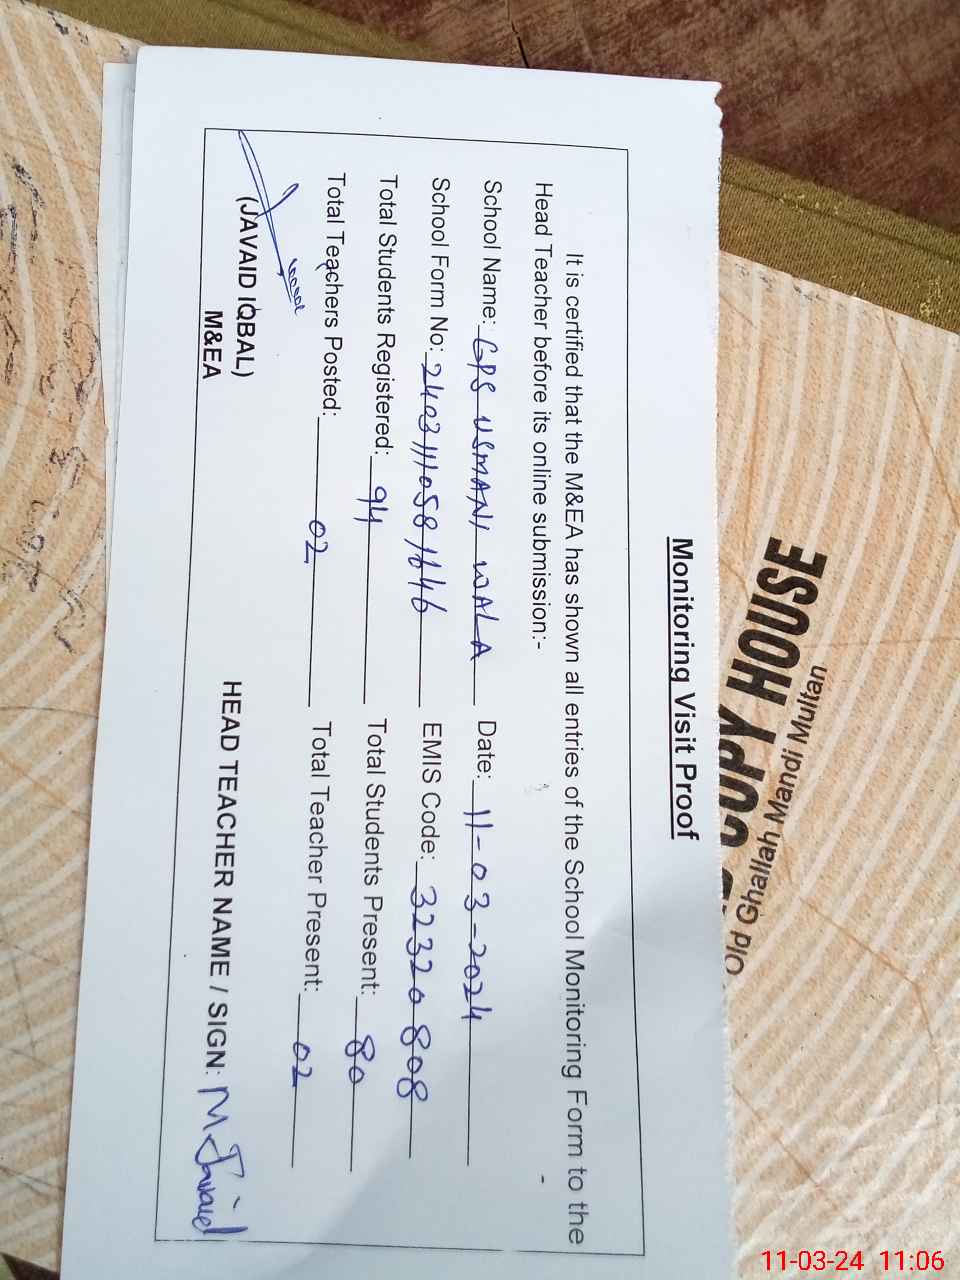 Monitoring Visit Proof
It is certified that the M&EA has shown all entries of the School Monitoring Form to the
Head Teacher before its online submission:-
School Name: GPS USMANI WALA Date: 11-03-2024
School Form No: EMIS Code: 32320808
Total Students Registered: 94 Total Students Present: 80
Total Teachers Posted: 02 Total Teacher Present: 02
(JAVAID IQBAL) HEAD TEACHER NAME / SIGN: M Javaid
M&EA
COPY HOUSE
Old Ghallah Mandi Multan
11-03-24 11:06